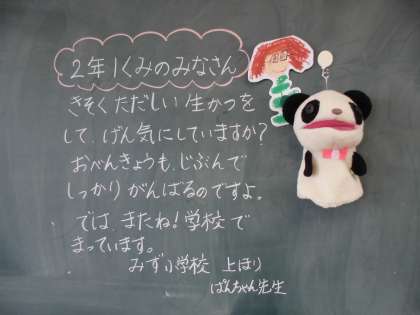 2年1くみのみなさん
きそくただしい生かつを
して、げん気にしていますか?
おべんきょうも、じぶんで
しっかりがんばるのですよ。
では、またね!学校で
まっています。
みずほ小学校 上ほり
ぱんちゃん先生